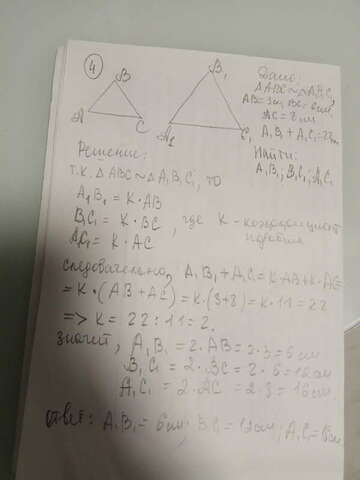 4
B
A
C
B₁
A₁
C₁
Дано:
ΔABC ~ ΔA₁B₁C₁
AB = 3см, BC = 6см
AC = 8см
A₁B₁ + A₁C₁ = 22см
Найти:
A₁B₁; B₁C₁; A₁C₁
Решение:
Т.К. Δ ABC ~ Δ A₁B₁C₁, то
A₁B₁ = K · AB
B₁C₁ = K · BC, где K - коэффициент
подобия
A₁C₁ = K · AC
следовательно, A₁B₁ + A₁C₁ = K·AB + K·AC =
= K · (AB + AC) = K · (3+8) = K · 11 = 22
=> K = 22 : 11 = 2.
значит, A₁B₁ = 2 · AB = 2 · 3 = 6 см
B₁C₁ = 2 · BC = 2 · 6 = 12 см
A₁C₁ = 2 · AC = 2 · 8 = 16 см
ответ: A₁B₁ = 6см; B₁C₁ = 12см; A₁C₁ = 16см